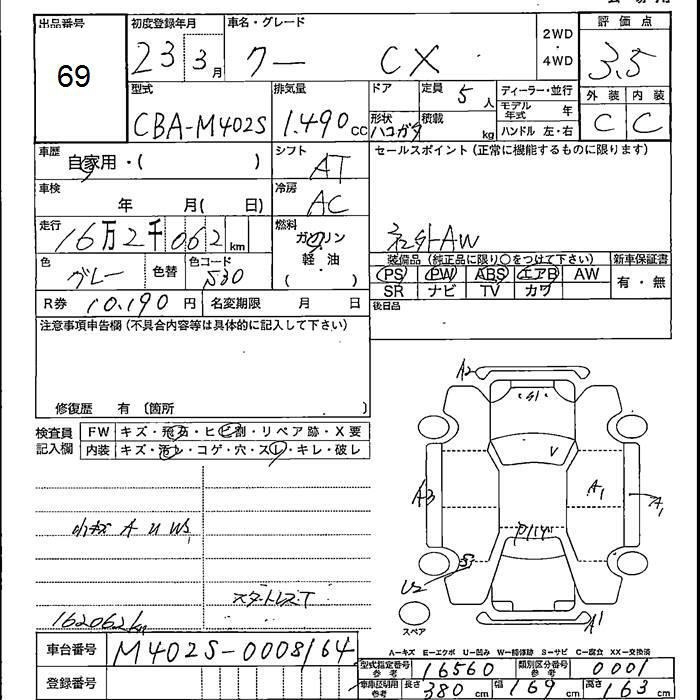 出品番号 初度登録年月 車名・グレード 2WD・4WD 評価点
69 23 3月 クー CX 3.5
型式 排気量 ドア 定員 5人 ディーラー・並行 外装 内装
CBA-M402S 1.490cc 形状 ハコガタ 積載 kg モデル年式 年 ハンドル 左・右 C C
車歴 自家用・( ) シフト AT セールスポイント(正常に機能するものに限ります)
車検 年 月( 日) 冷房 AC
走行 16万2千062km 燃料 ガソリン 軽・油 ( ) 社外AW
色 グレー 色替 色コード S30
装備品(純正品に限り○をつけて下さい) 新車保証書
PS PW ABS エアB AW 有・無
SR ナビ TV カワ
R券 10,190円 名変期限 月 日 後日品
注意事項申告欄(不具合内容等は具体的に記入して下さい)
修復歴 有 〔箇所 〕
検査員記入欄 FW キズ・飛石・ヒビ割・リペア跡・X要
内装 キズ・汚レ・コゲ・穴・スレ・キレ・破レ
A2
S1
V
A3
A1
A1
U2
S
A1
スペア
小キズ A U W
スタートレスT
162062km
A-キズ E-エクボ U-凹み W-補修跡 S-サビ C-腐食 XX-交換済
車台番号 M402S-0008164
型式指定番号 参考 16560 類別区分番号 参考 0001
登録番号
車庫証明用 参考 長さ 380cm 幅 169cm 高さ 163cm